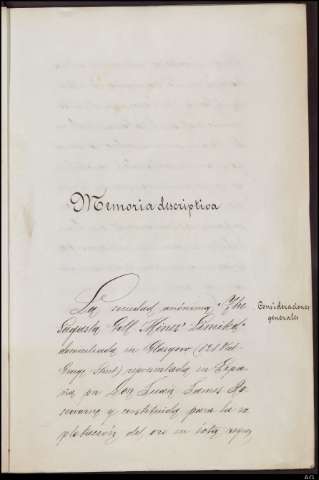 Memoria descriptiva
La sociedad anónima "The
Sagasta Gold Mines Limited"
domiciliada en Glasgow (121 West
George Street) representada en Espa
ña por Don Juan James
y constituida para la ex
plotación del oro en esta
Consideraciones
generales